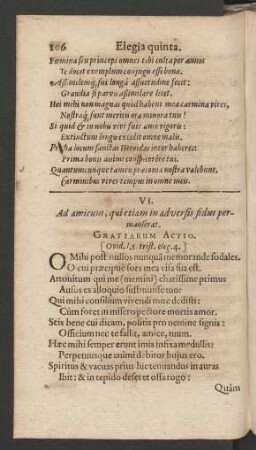 106 Elegia quinta.
Fœmina seu princeps omnes tibi culta per annos
Te docet exemplum conjugis esse bonæ.
Assimilemq; sui longâ assuetudine fecit:
Grandia si parvis assimilare licet.
Hei mihi non magnas quòd habent mea carmina vires,
Nostraq; sunt meritis ora minora tuis!
Si quid & in nobis vivi fuit ante vigoris:
Extinctum longis excidit omne malis.
Prima locum sanctas Heroidas inter haberes:
Prima bonis animi conspicerere tui.
Quantumcunque tamen præconia nostra valebunt.
Carminibus vives tempus in omne meis.
VI.
Ad amicum, qui etiam in adversis fidus per-
manserat,
GRATIARUM ACTIO.
[Ovid. l. 1. trist. eleg. 4.]
O Mihi post nullos nunquā memorande sodales.
O cui præcipuè sors mea visa sua est.
Attonitum qui me (memini) charissime primus
Ausus es alloquio sustinuisse tuo:
Qui mihi consilium vivendi mite dedisti:
Cùm foret in misero pectore mortis amor.
Scis bene cui dicam, positis pro nomine signis:
Officium nec te fallit, amice, tuum.
Hæc mihi semper erunt imis infixa medullis:
Perpetuusque animi debitor hujus ero.
Spiritus & vacuas priùs hic tenuandus in auras
Ibit: & in tepido deseret ossa rogo:
Quàm